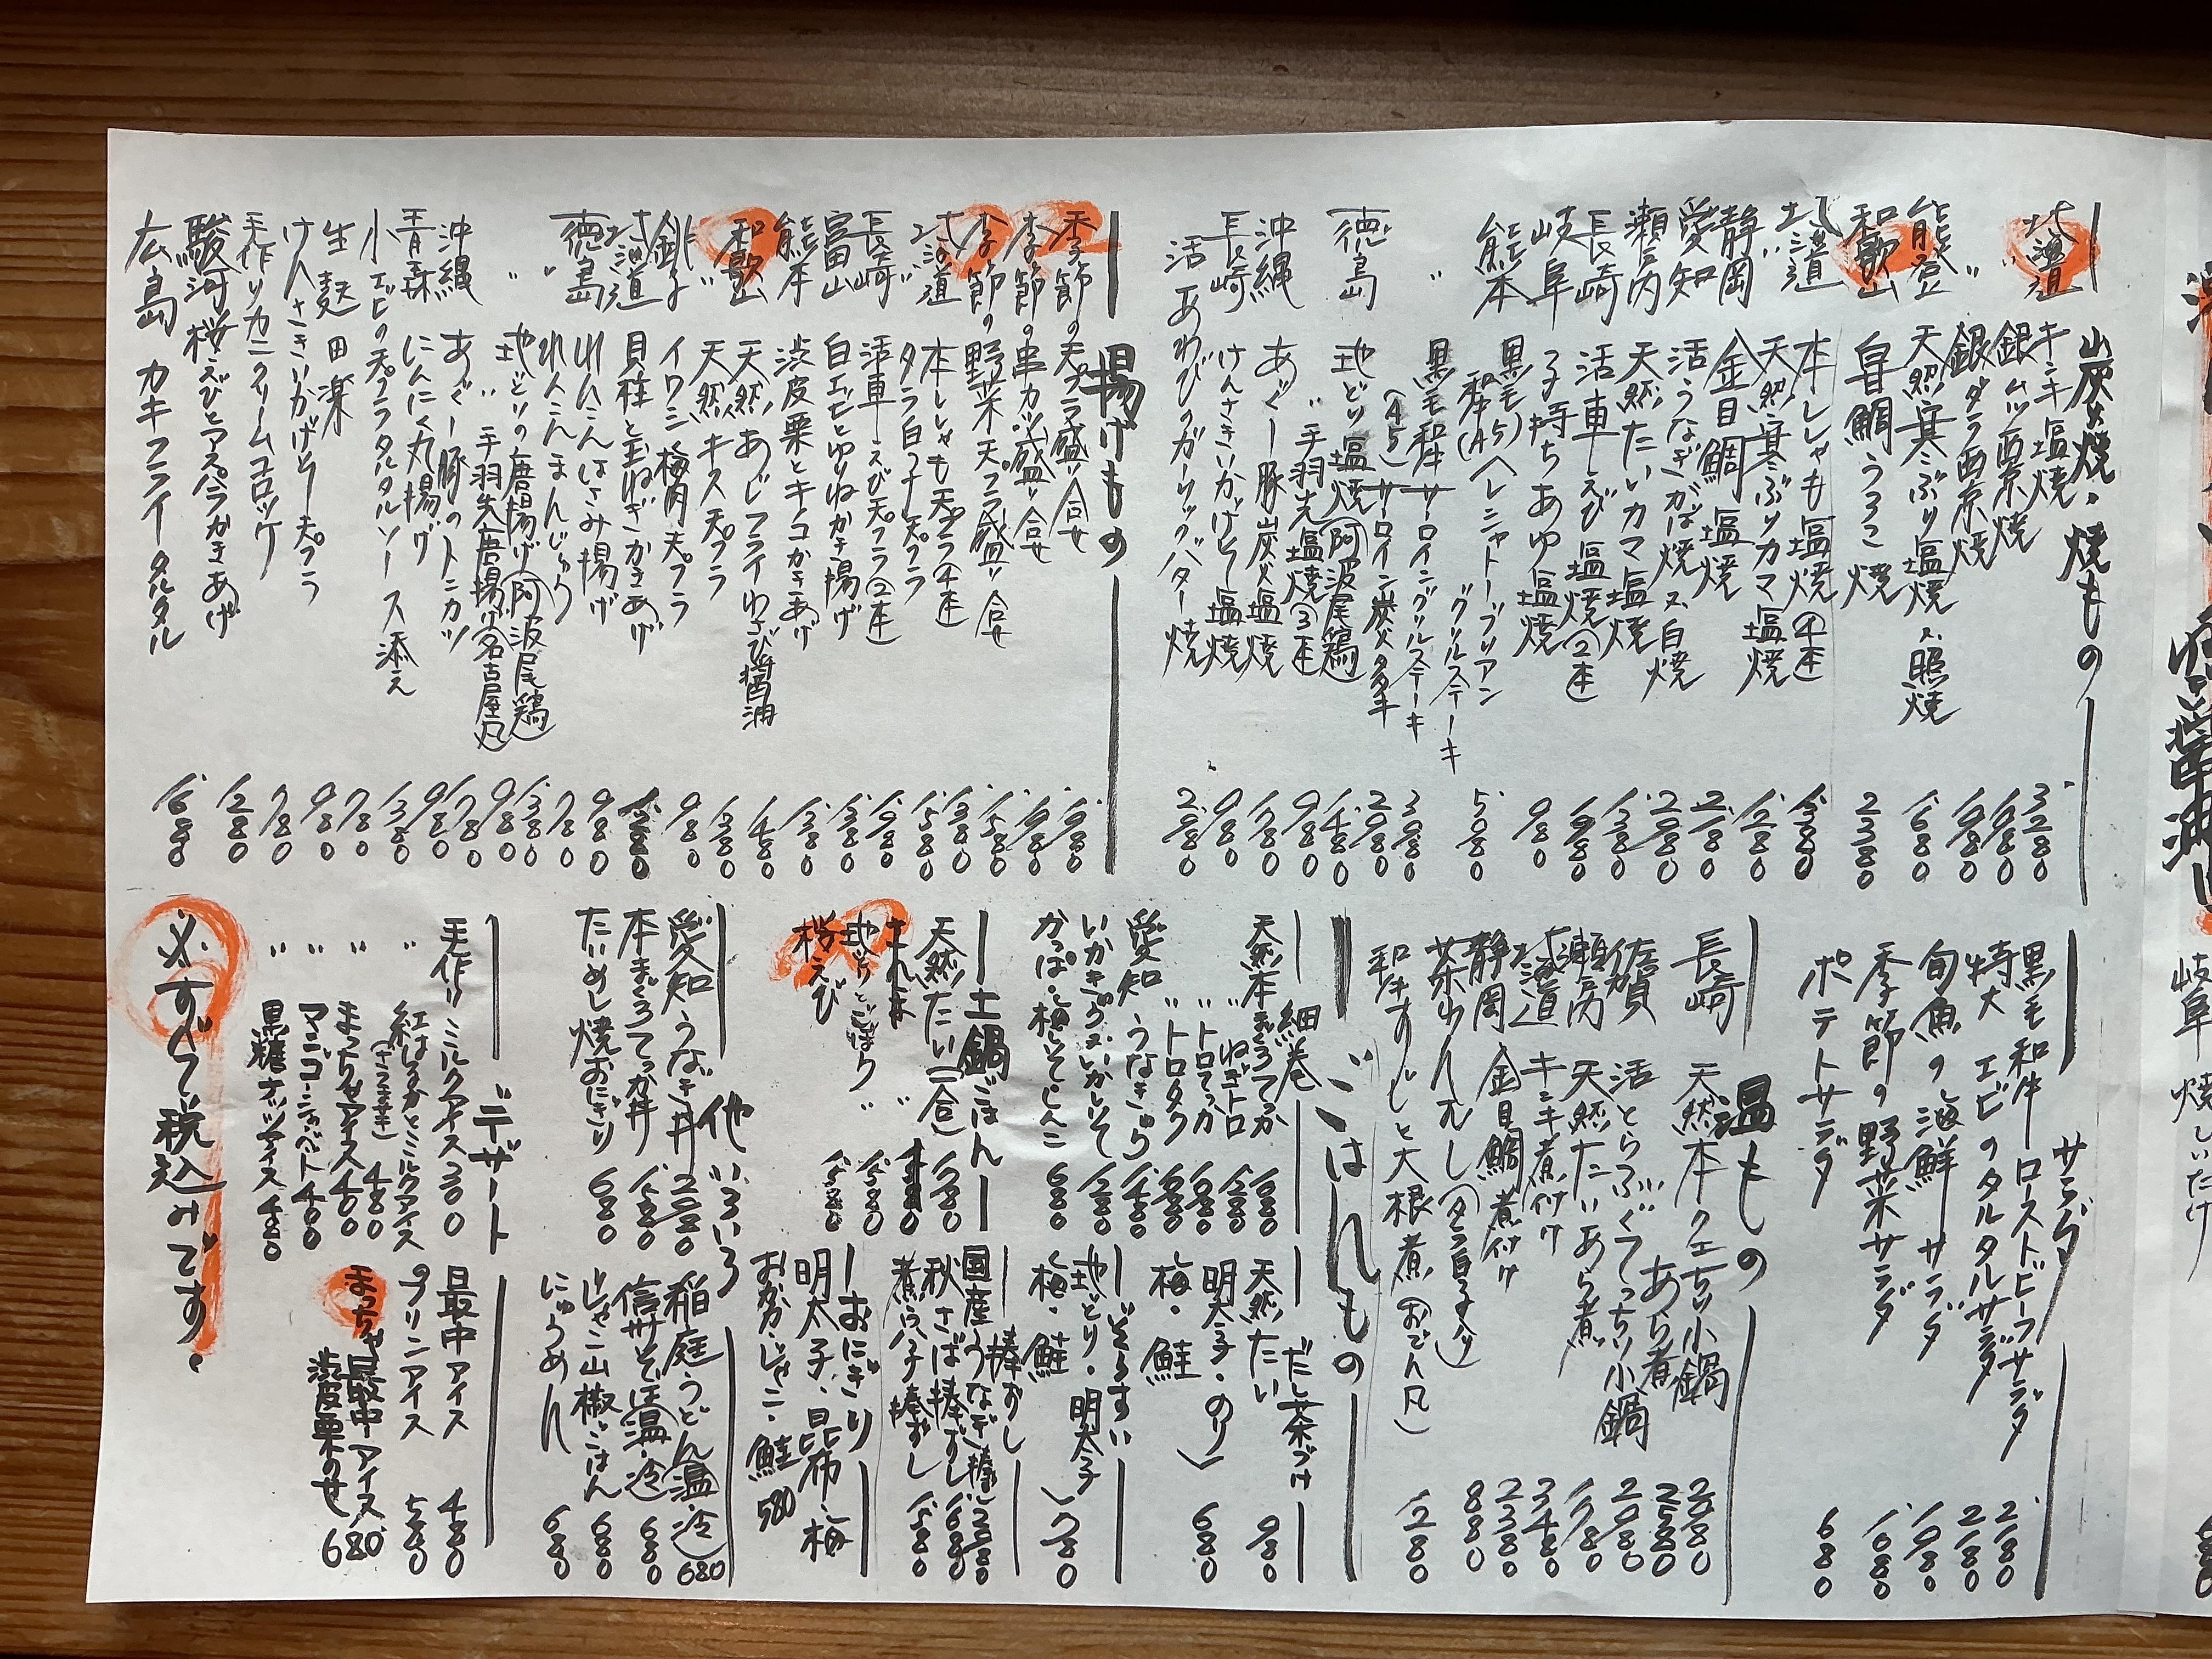 炭火焼・焼もの
北海道 キンキ塩焼 3280
〃 銀ムツ西京焼 1980
〃 銀ダラ西京焼 1980
能登 天然寒ぶり塩焼又照焼 1680
和歌山 甘鯛うろこ焼 2380
北海道 本ししゃも塩焼(4本) 1380
〃 天然寒ぶりカマ塩焼 1280
静岡 金目鯛塩焼 2180
愛知 活うなぎかば焼又白焼 2980
瀬戸内 天然たいカマ塩焼 1380
長崎 活車えび塩焼(2本) 1980
岐阜 子持ちあゆ塩焼 980
熊本 黒毛和牛(A5)ヘレシャトーブリアングリルステーキ 5080
〃 黒毛和牛(A5)サーロイングリルステーキ 3080
サーロイン炭火タタキ 2980
徳島 地どり塩焼(阿波尾鶏) 1480
〃 手羽先塩焼(3本) 980
沖縄 あぐー豚炭火塩焼 1780
長崎 けんさきいかげそ塩焼 980
活あわびのガーリックバター焼 2980
揚げもの
季節の天プラ盛り合せ 1980
季節の串カツ盛り合せ 1980
季節の野菜天プラ盛り合せ 1580
北海道 本ししゃも天プラ(4本) 1380
〃 タラ白子天プラ 1580
長崎 活車えび天プラ(2本) 1980
富山 白エビとゆりねかき揚げ 1380
熊本 渋皮栗とキノコかきあげ 1380
和歌山 天然あじフライわさび醤油 1480
〃 天然キス天プラ 1380
銚子 イワシ梅肉天プラ 980
北海道 貝柱と玉ねぎかきあげ 1380
れんこんはさみ揚げ 980
れんこんまんじゅう 780
徳島 地どりの唐揚げ(阿波尾鶏) 1380
〃 〃手羽先唐揚げ(名古屋風) 980
沖縄 あぐー豚のトンカツ 1780
青森 にんにく丸揚げ 980
小エビの天プラタルタルソース添え 1380
生麩田楽 780
けんさきいかげそ天プラ 980
手作りカニクリームコロッケ 780
駿河桜えびとアスパラかきあげ 1280
広島 カキフライタルタル 1680
サラダ
黒毛和牛ローストビーフサラダ 2180
特大エビのタルタルサラダ 2180
旬魚の海鮮サラダ 1980
季節の野菜サラダ 1080
ポテトサラダ 680
温もの
長崎 天然本クエちり小鍋 2980
あら煮 2580
佐賀 活とらふぐてっちり小鍋 2980
瀬戸内 天然たいあら煮 1780
北海道 キンキ煮付け 3480
静岡 金目鯛煮付け 2380
茶わんむし(タラ白子入り) 880
和牛すじと大根煮(おでん風) 1280
ごはんもの
細巻
天然本まぐろてっか 1680
〃 ねぎトロ 1280
〃 トロてっか 1980
〃 トロタク 1680
愛知 うなぎきゅう 1480
いかキムチ・いかしそ 1280
かっぱ・梅しそ・しんこ 680
だし茶づけ
天然たい 980
明太子・のり
梅・鮭 680
ぞうすい
地どり・明太子
梅・鮭 780
土鍋ごはん
天然たい(一合) 1780
地どりとごぼう〃 1580
桜えび 1580
棒ずし
国産うなぎ棒ずし 2980
秋さば棒ずし 1680
煮穴子棒ずし 1580
おにぎり
明太子・昆布・梅
おかか・じゃこ・鮭 580
他いろいろ
愛知 うなぎ丼 2980
本まぐろてっか丼 1580
たいめし焼おにぎり 680
稲庭うどん(温・冷) 680
信州そば(温・冷) 680
じゃこ山椒ごはん 680
にゅうめん 680
デザート
手作り ミルクアイス 300
〃 紅はるかとミルクアイス 480
〃 まっちゃアイス 400
〃 マンゴーシャーベット 400
〃 黒糖ナッツアイス 480
最中アイス 480
プリンアイス 580
まっちゃ最中アイス 680
渋皮栗のせ 680
必ずすべて税込みです。